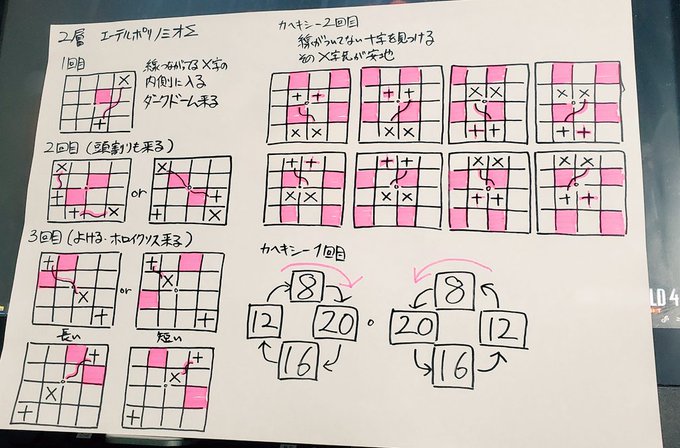 2層 エーテルポリノミオΣ
1回目
線つながってる×字の
内側に入る
ダークドーム来る
2回目(頭割りも来る)
or
3回目(よける・ホロイクソス来る)
or
長い
短い
カヘキシー2回目
線がついてない十字を見つける
その×字先が安地
カヘキシー1回目
8
12 20
16
8
20 12
16
LD4